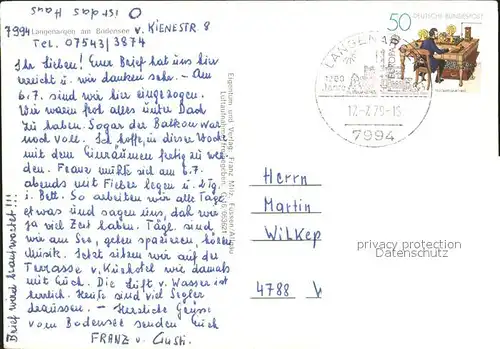 O ist das Haus
7994 Langenargen am Bodensee v. KIENESTR 8
Tel. 07543/3874
Ihr Lieben! Euer Brief hat uns hier
erreicht u. wir danken sehr. – Am
6.7. sind wir hier eingezogen.
Wir waren froh alles unter Dach
zu haben. Sogar der Balkon war
noch voll. Ich hoffe, in dieser Woche
mit dem Einräumen fertig zu wer-
den. Franz mußte sich am 6.7.
abends mit Fieber legen u. 2 Tg.
i. Bett. So arbeiten wir alle Tage
etwas und sagen uns, daß wir
ja viel Zeit haben. Tägl. sind
wir am See, gehen spazieren, hören
Musik. Jetzt sitzen wir auf der
Terrasse v. Kurhotel wie damals
mit Euch. Die Luft v. Wasser ist
herrlich. Heute sind viel Segler
draussen. – Herzliche Grüsse
vom Bodensee senden Euch
FRANZ u. Gusti.
Brief wird beantwortet!!!
Eigentum und Verlag: Franz Milz, Füssen/Allgäu
50 DEUTSCHE BUNDESPOST
LANGENAR
1200
Jahre
12.-7.79-15
7994
Herrn
Martin
Wilkep
4788
privacy protection
Datenschutz